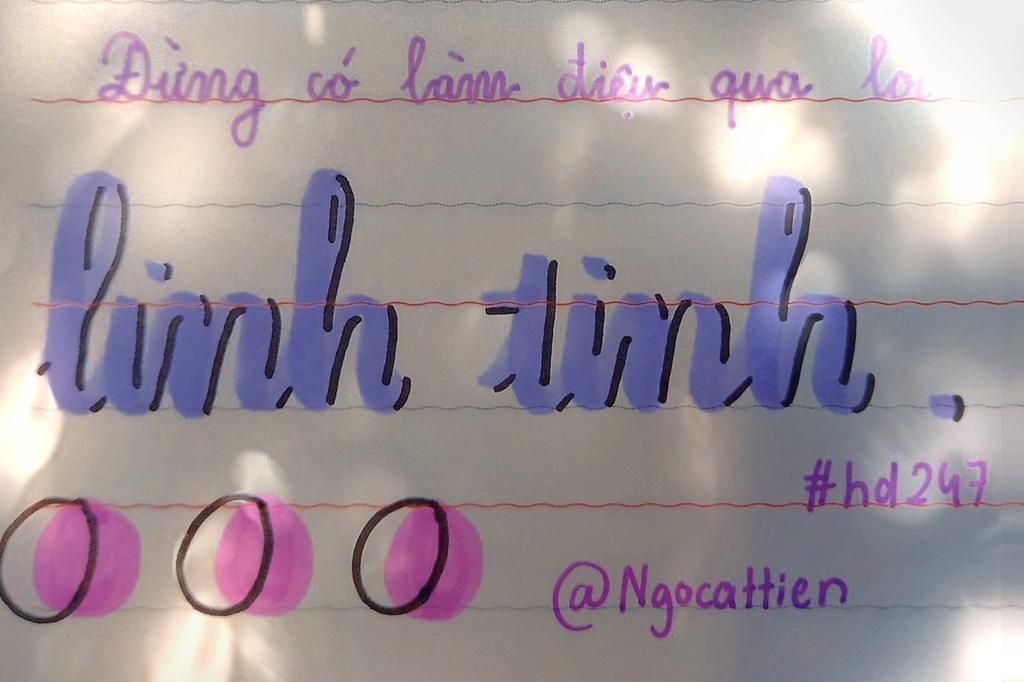 Đừng có làm điệu qua
linh tinh .
#hd247
@Ngocattien